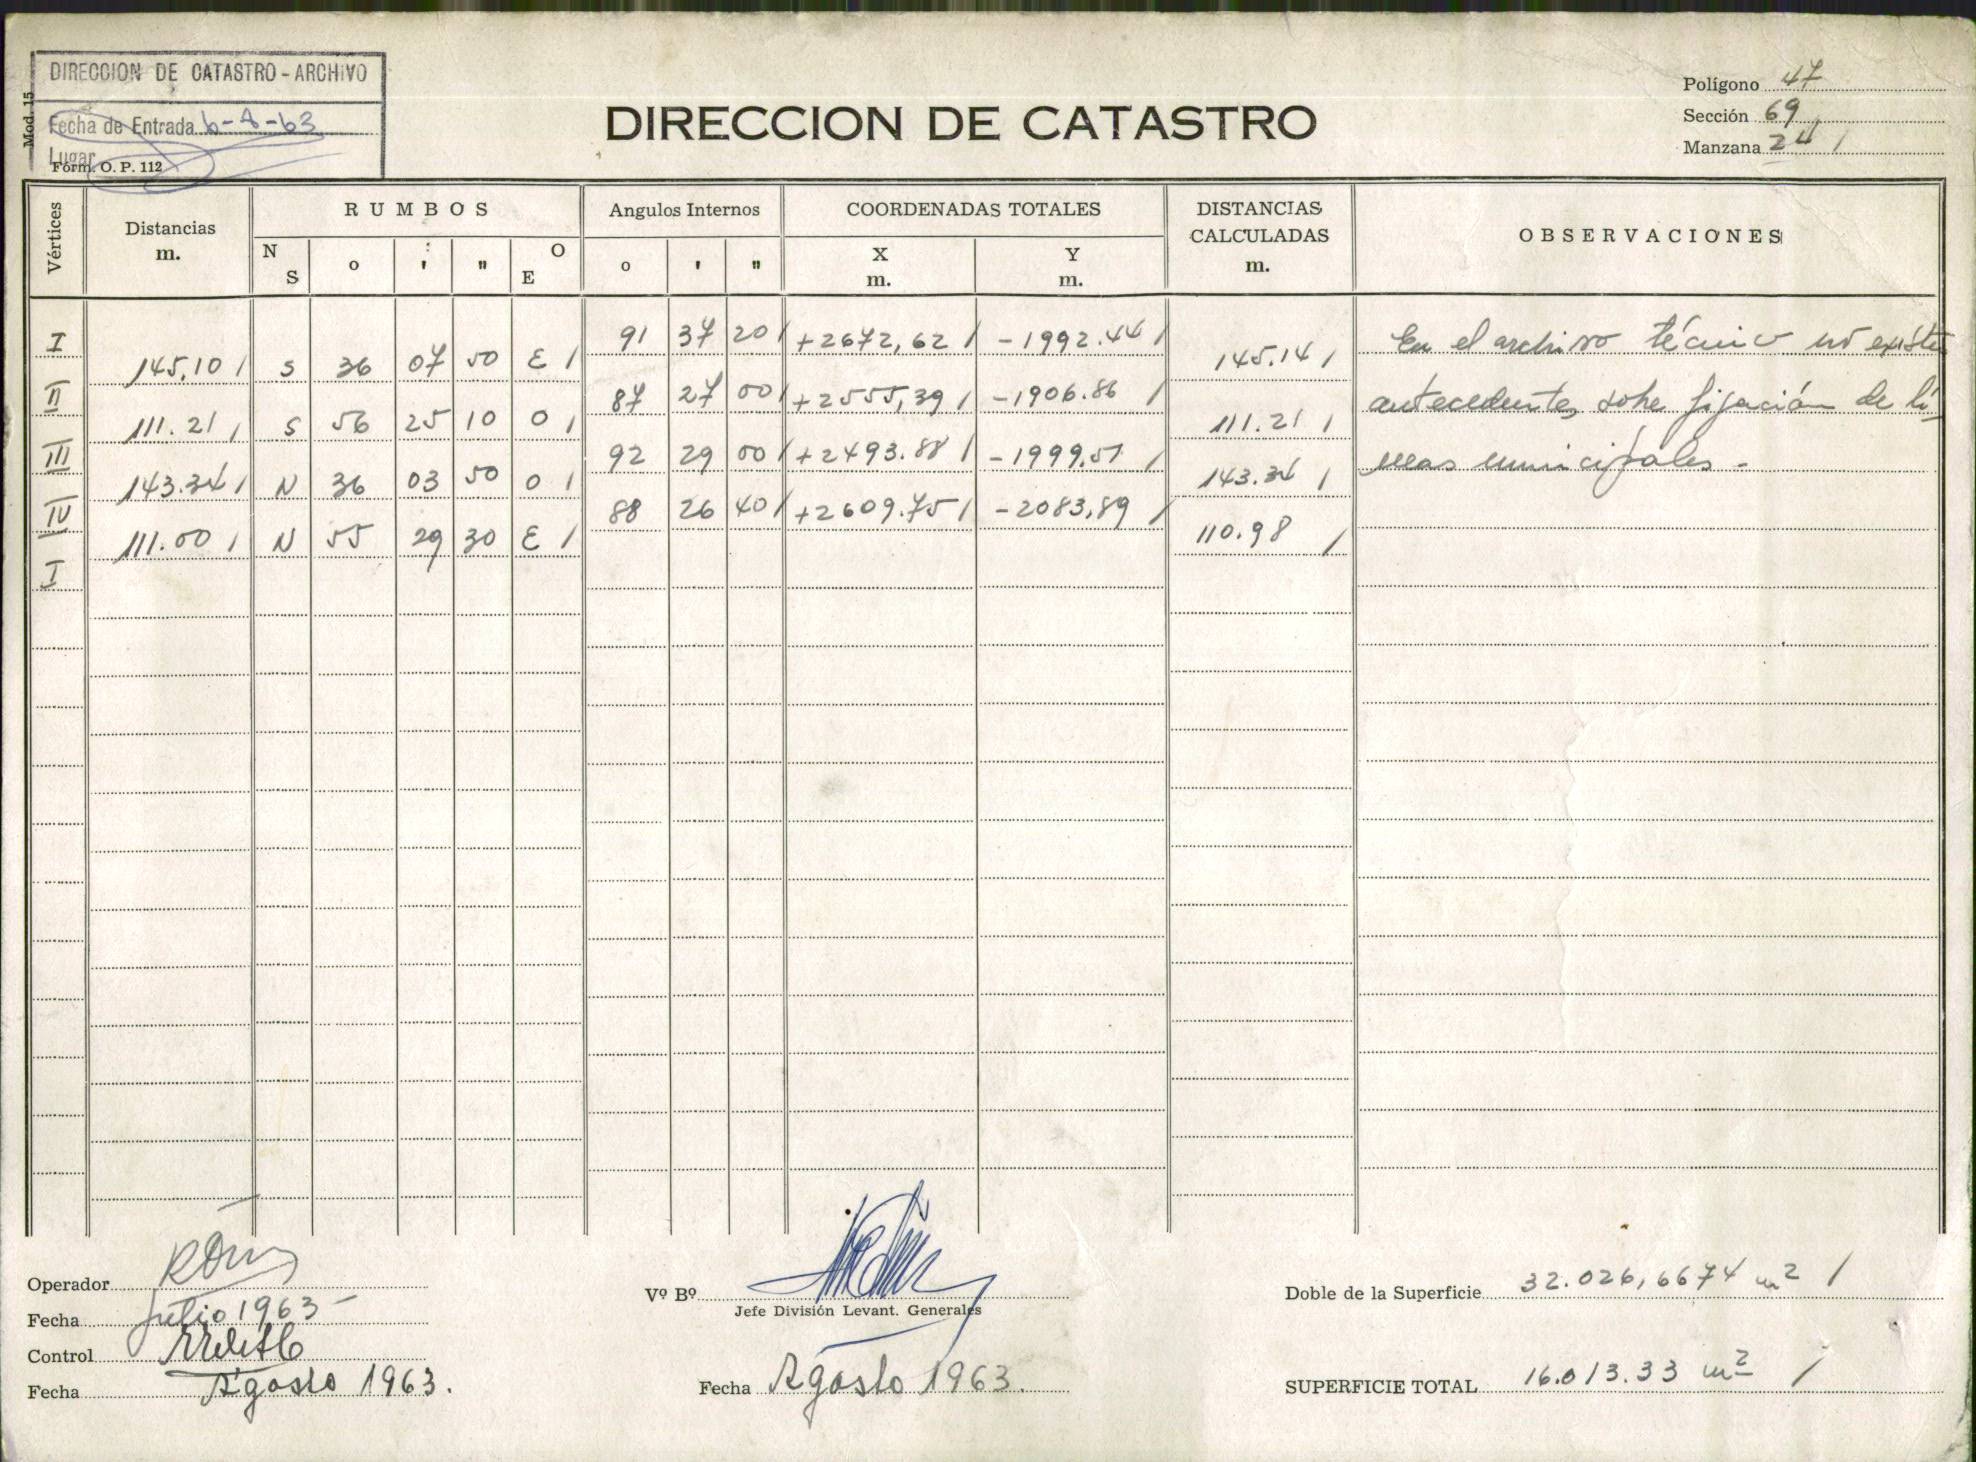 DIRECCION DE CATASTRO - ARCHIVO
Mod. 15
Fecha de Entrada 6-8-63
Lugar
Form. O. P. 112
DIRECCION DE CATASTRO
Polígono 47
Sección 69
Manzana 24 /
Vértices
Distancias m.
RUMBOS
N S o ' " O E
Angulos Internos
o ' "
COORDENADAS TOTALES
X m. Y m.
DISTANCIAS CALCULADAS m.
OBSERVACIONES
I 91 37 20 / +2672,62 / -1992.44 /
145.10 / S 36 07 50 E / 145.14 /
II 87 27 00 / +2555,39 / -1906.86 /
111.21 / S 56 25 10 O / 111.21 /
III 92 29 00 / +2493.88 / -1999.51 /
143.34 / N 36 03 50 O / 143.34 /
IV 88 26 40 / +2609.75 / -2083,89 /
111.00 / N 55 29 30 E / 110.98 /
I
En el archivo técnico no existen
antecedentes sobre fijación de lí-
neas municipales.-
Operador
Fecha Julio 1963-
Control
Fecha Agosto 1963.
Vº Bº
Jefe División Levant. Generales
Fecha Agosto 1963.
Doble de la Superficie 32.026,6674 m2 /
SUPERFICIE TOTAL 16.013.33 m2 /